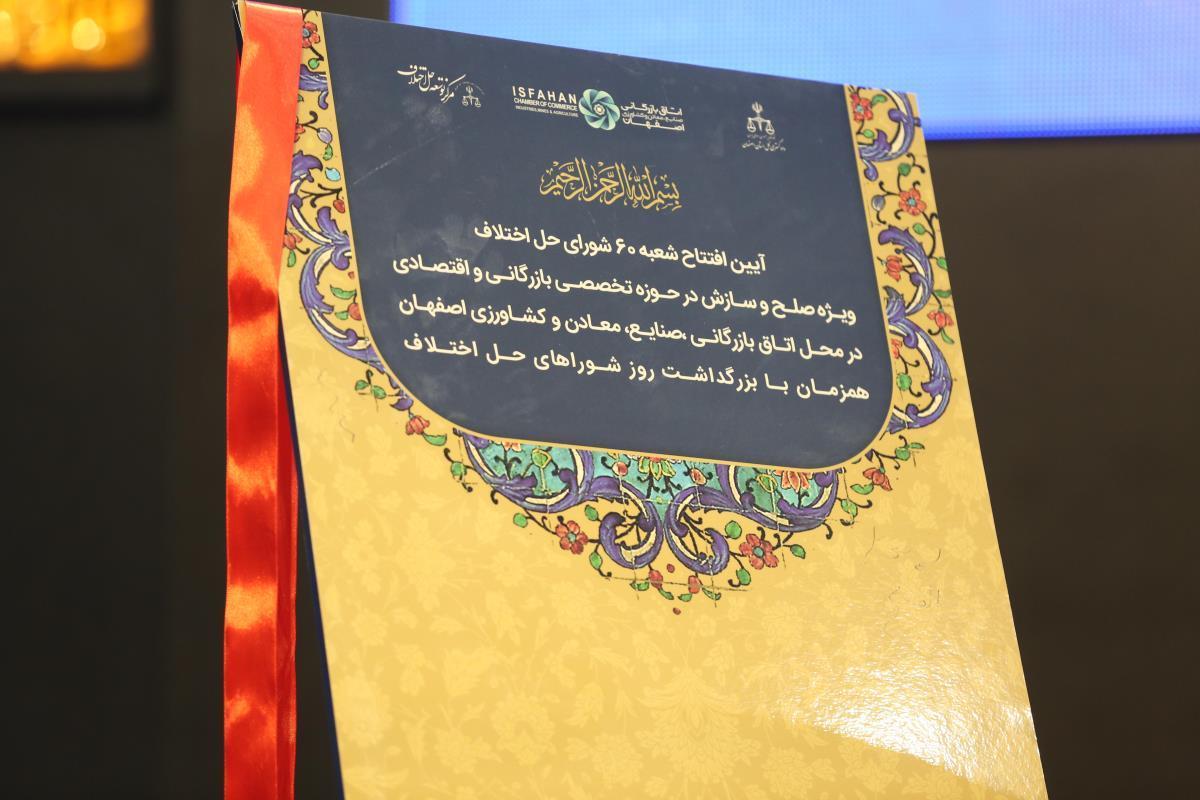 مرکز توسعه حل اختلاف
ISFAHAN
CHAMBER OF COMMERCE
INDUSTRIES, MINES & AGRICULTURE
اتاق بازرگانی
صنایع، معادن و کشاورزی
اصفهان
بسم الله الرحمن الرحیم
آیین افتتاح شعبه ۶۰ شورای حل اختلاف
ویژه صلح و سازش در حوزه تخصصی بازرگانی و اقتصادی
در محل اتاق بازرگانی ،صنایع، معادن و کشاورزی اصفهان
همزمان با بزرگداشت روز شوراهای حل اختلاف